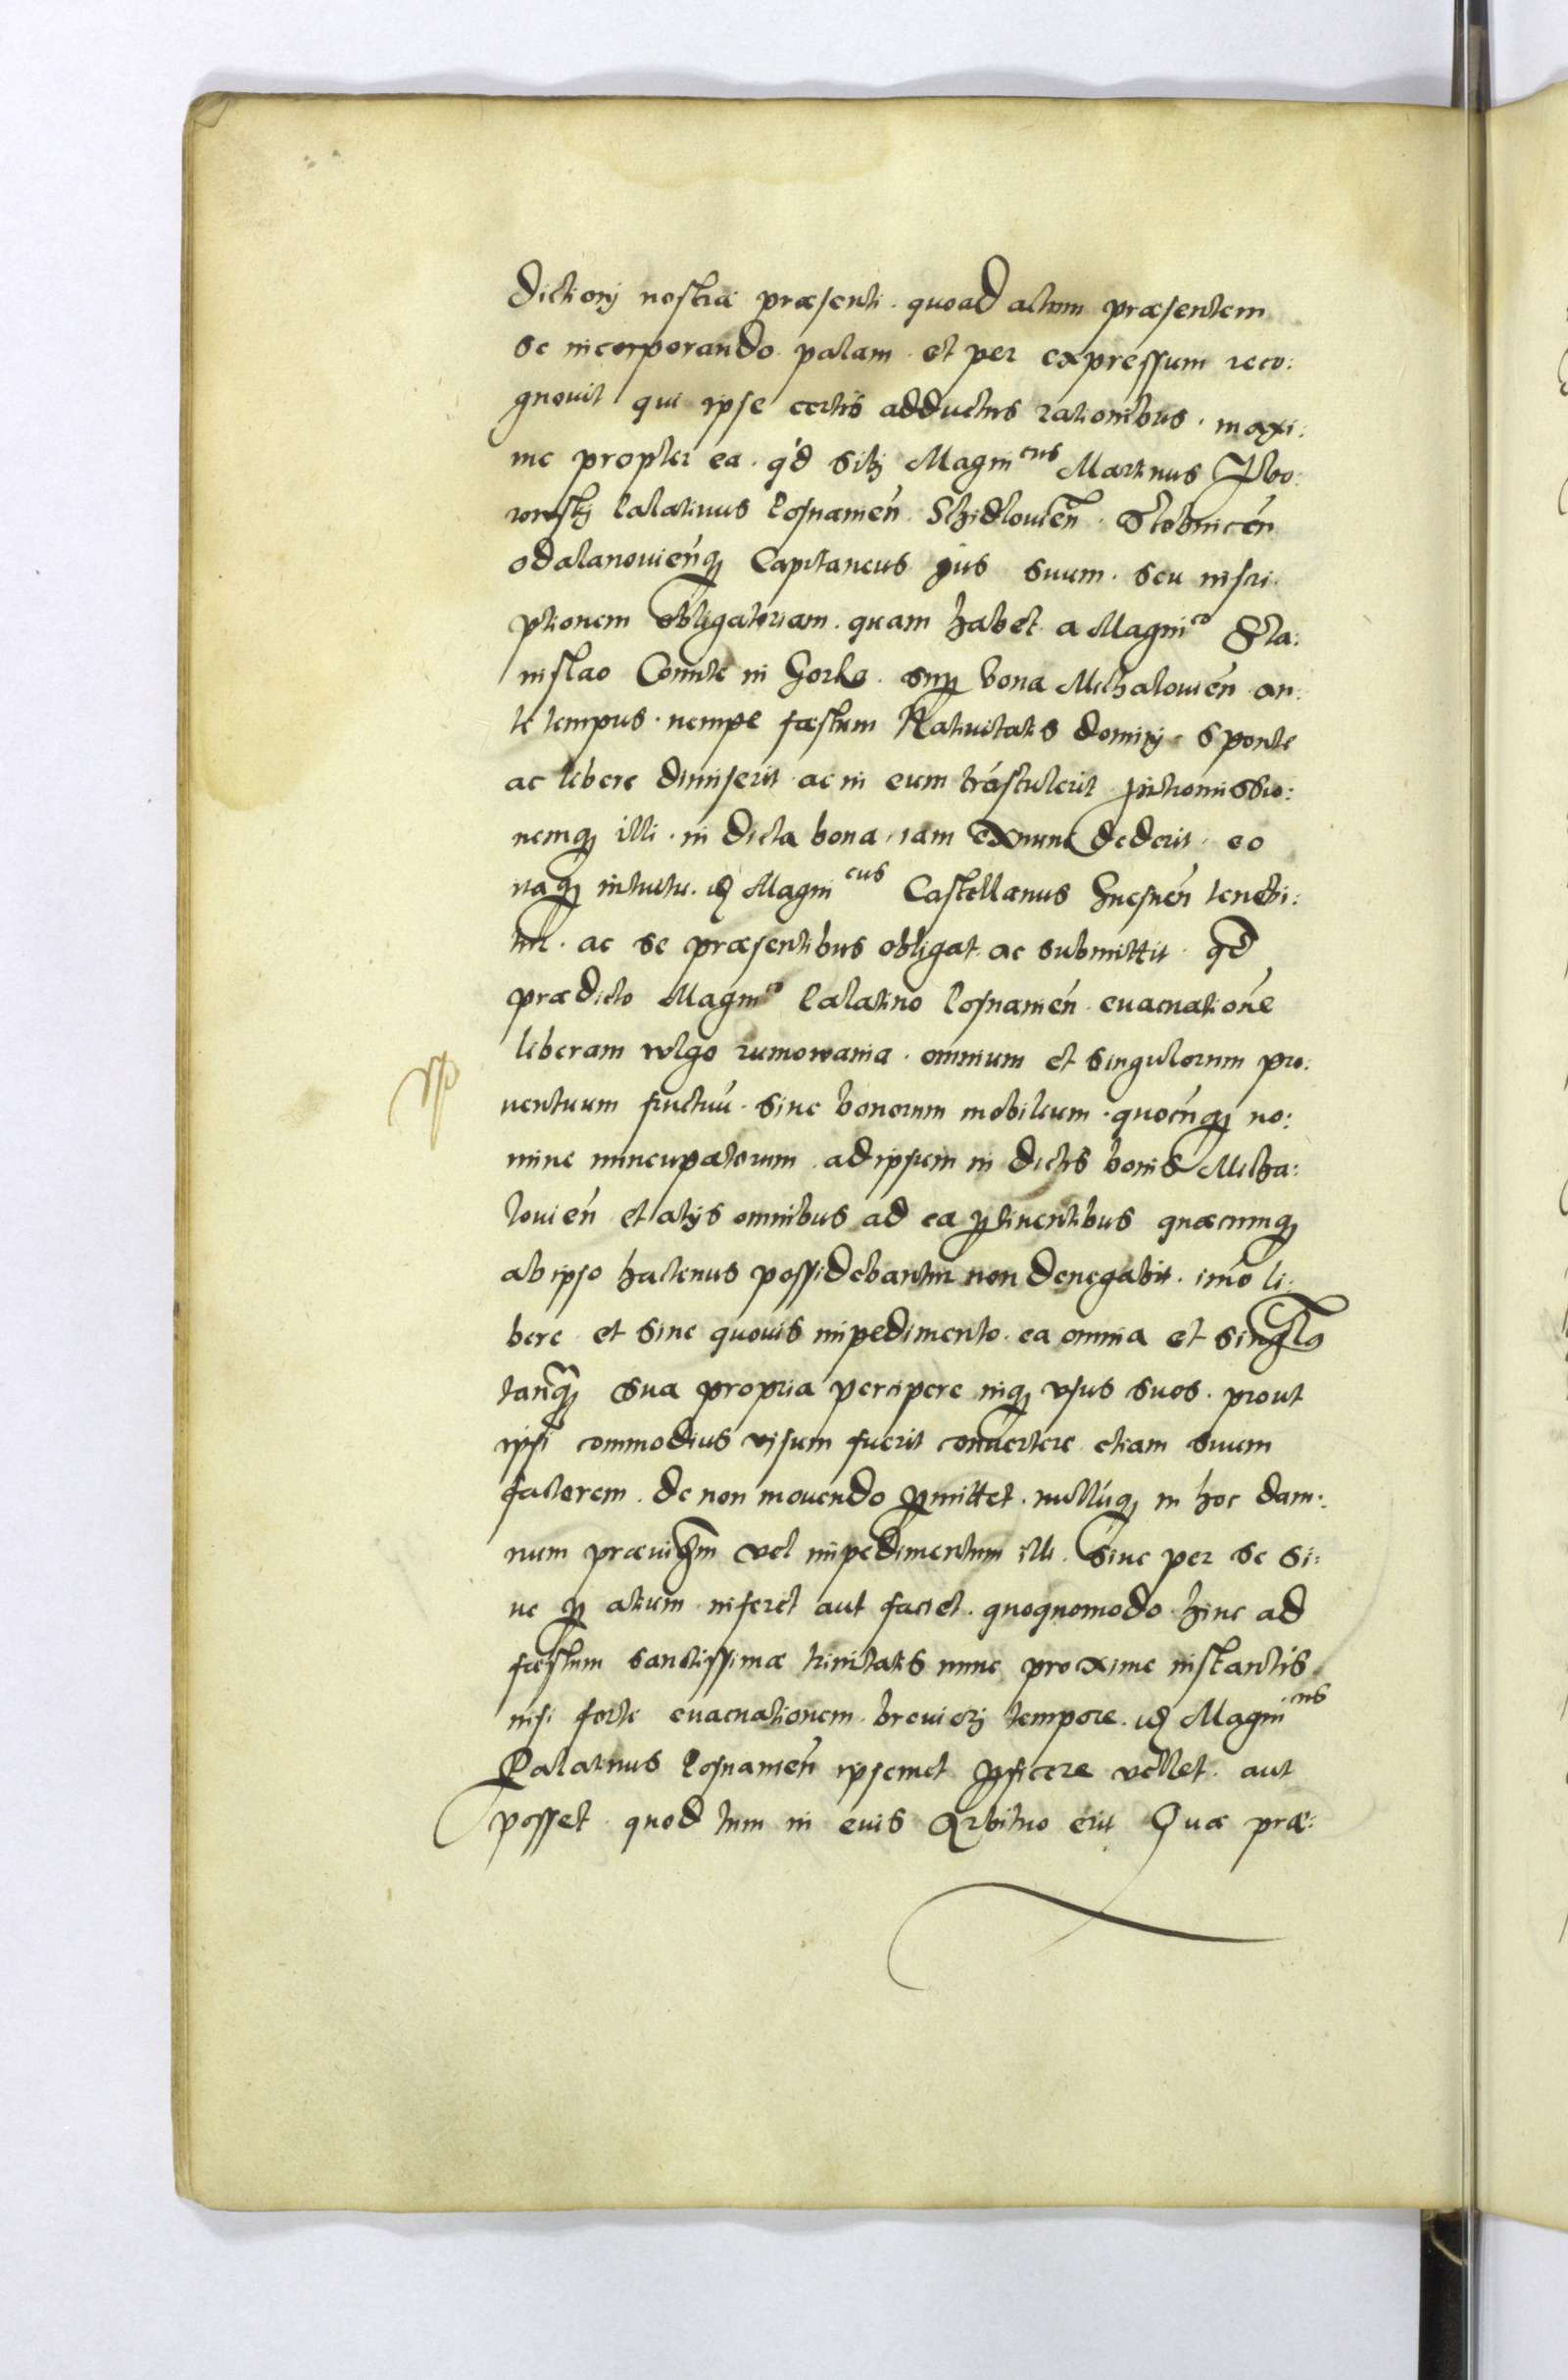 dictionj nostræ præsenti. quoad actum præsentem
se incorporando palam et per expressum reco:
gnouit qui ipse certis adductus rationibus. maxi:
me propter ea. q'd sibj Magni^cus Martinus Sbo:
rowskj Palatinus Posnanień. Schidlouień. Stobnicén
odalanouienq₃ Capitaneus jus suum. seu inscri
ptionem obligatoriam. quam habet a Magni^co Sta:
nislao Comite in Gorka. sup bona Michalouień an:
te tempus. nempe fæstum Natiuitatis dominj sponte
ac libere dimiserit ac in eum trástulerit intromissio:
nemq₃ illi. in dicta bona. iam exnunc dederit. eo
itaq₃ intuitu. id Magni^cus Castellanus Gnesnén tenebi:
tur. ac se præsentibus obligat. ac submittit. qd
prædicto Magni^co Palatino Posnanień. euacuationé
liberam wlgo rumowania. omnium et singulorum pro:
uentuum fructuú. siue bonorum mobilium. quocúnq₃ no:
mine nuncupatorum ad ipsum in dictis bonis Micha:
louién et alijs omnibus ad ea ptinentibus quæcunq₃
ab ipso hactenus possidebantur non denegabit. imó li:
bere et sine quouis impedimento. ea omnia et singula
tanq̃ sua propria percipere inq₃ vsus suos. prout
ipsi commodius visum fuerit conuertere etiam suum
factorem. de non mouendo pmittet. nullúq₃ in hoc dam:
num præuigm vel impedimentum illi. siue per se si:
ue p alium inferet aut faciet. quoquomodo hinc ad
fæstum sanctissimæ trinitatis nunc proxime instantis
nisi forte euacuationem. breuiorj tempore. id Magni^cus
Palatinus Posnanień ipsemet pficere vellet. aut
posset. quod tum in euis Arbitrio erit Quæ præ: